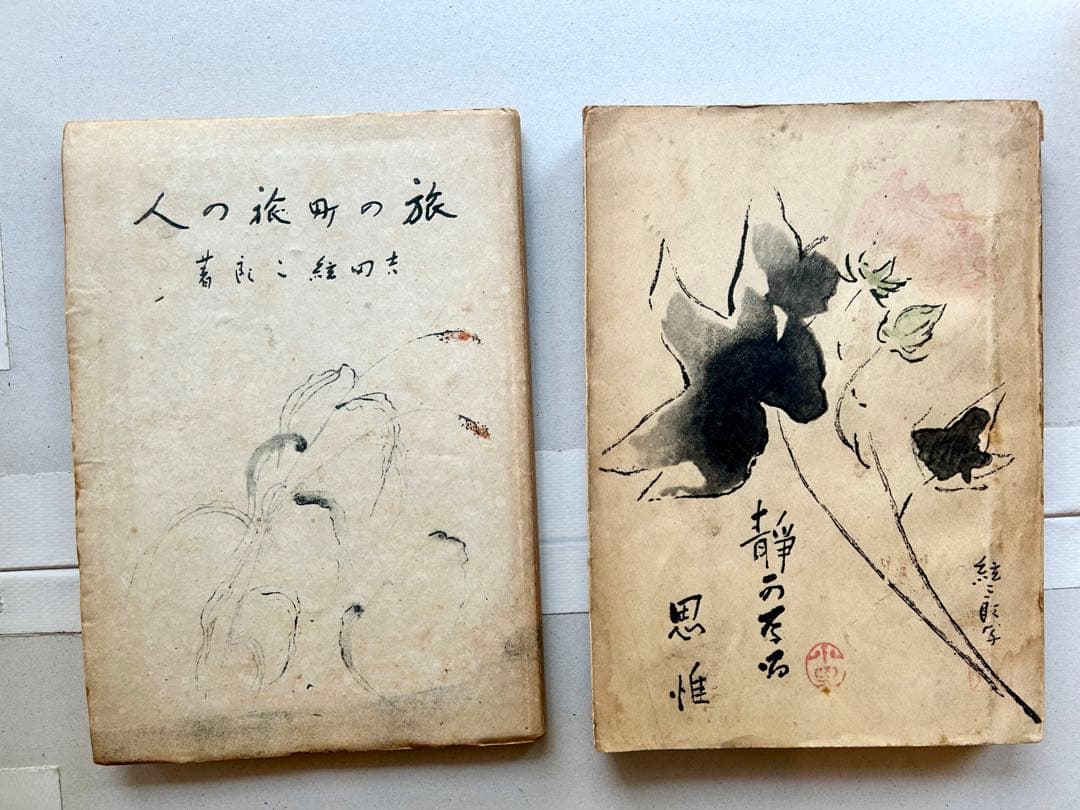 旅の町旅の人
吉田絃二郎著
靜かなる
思惟
絃二郎